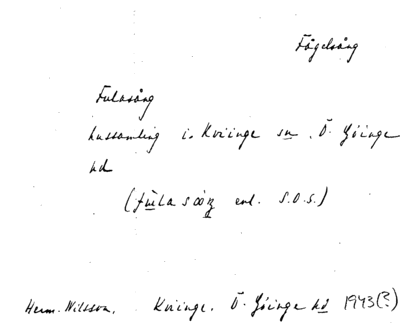 Fågelsång
Fulasång
hussamling i. Kviinge sn. Ö. Göinge
hd
(fu̲la sɷŋ enl. S.O.S.)
Herm. Nilsson. Kviinge. Ö. Göinge hd 1943(?)